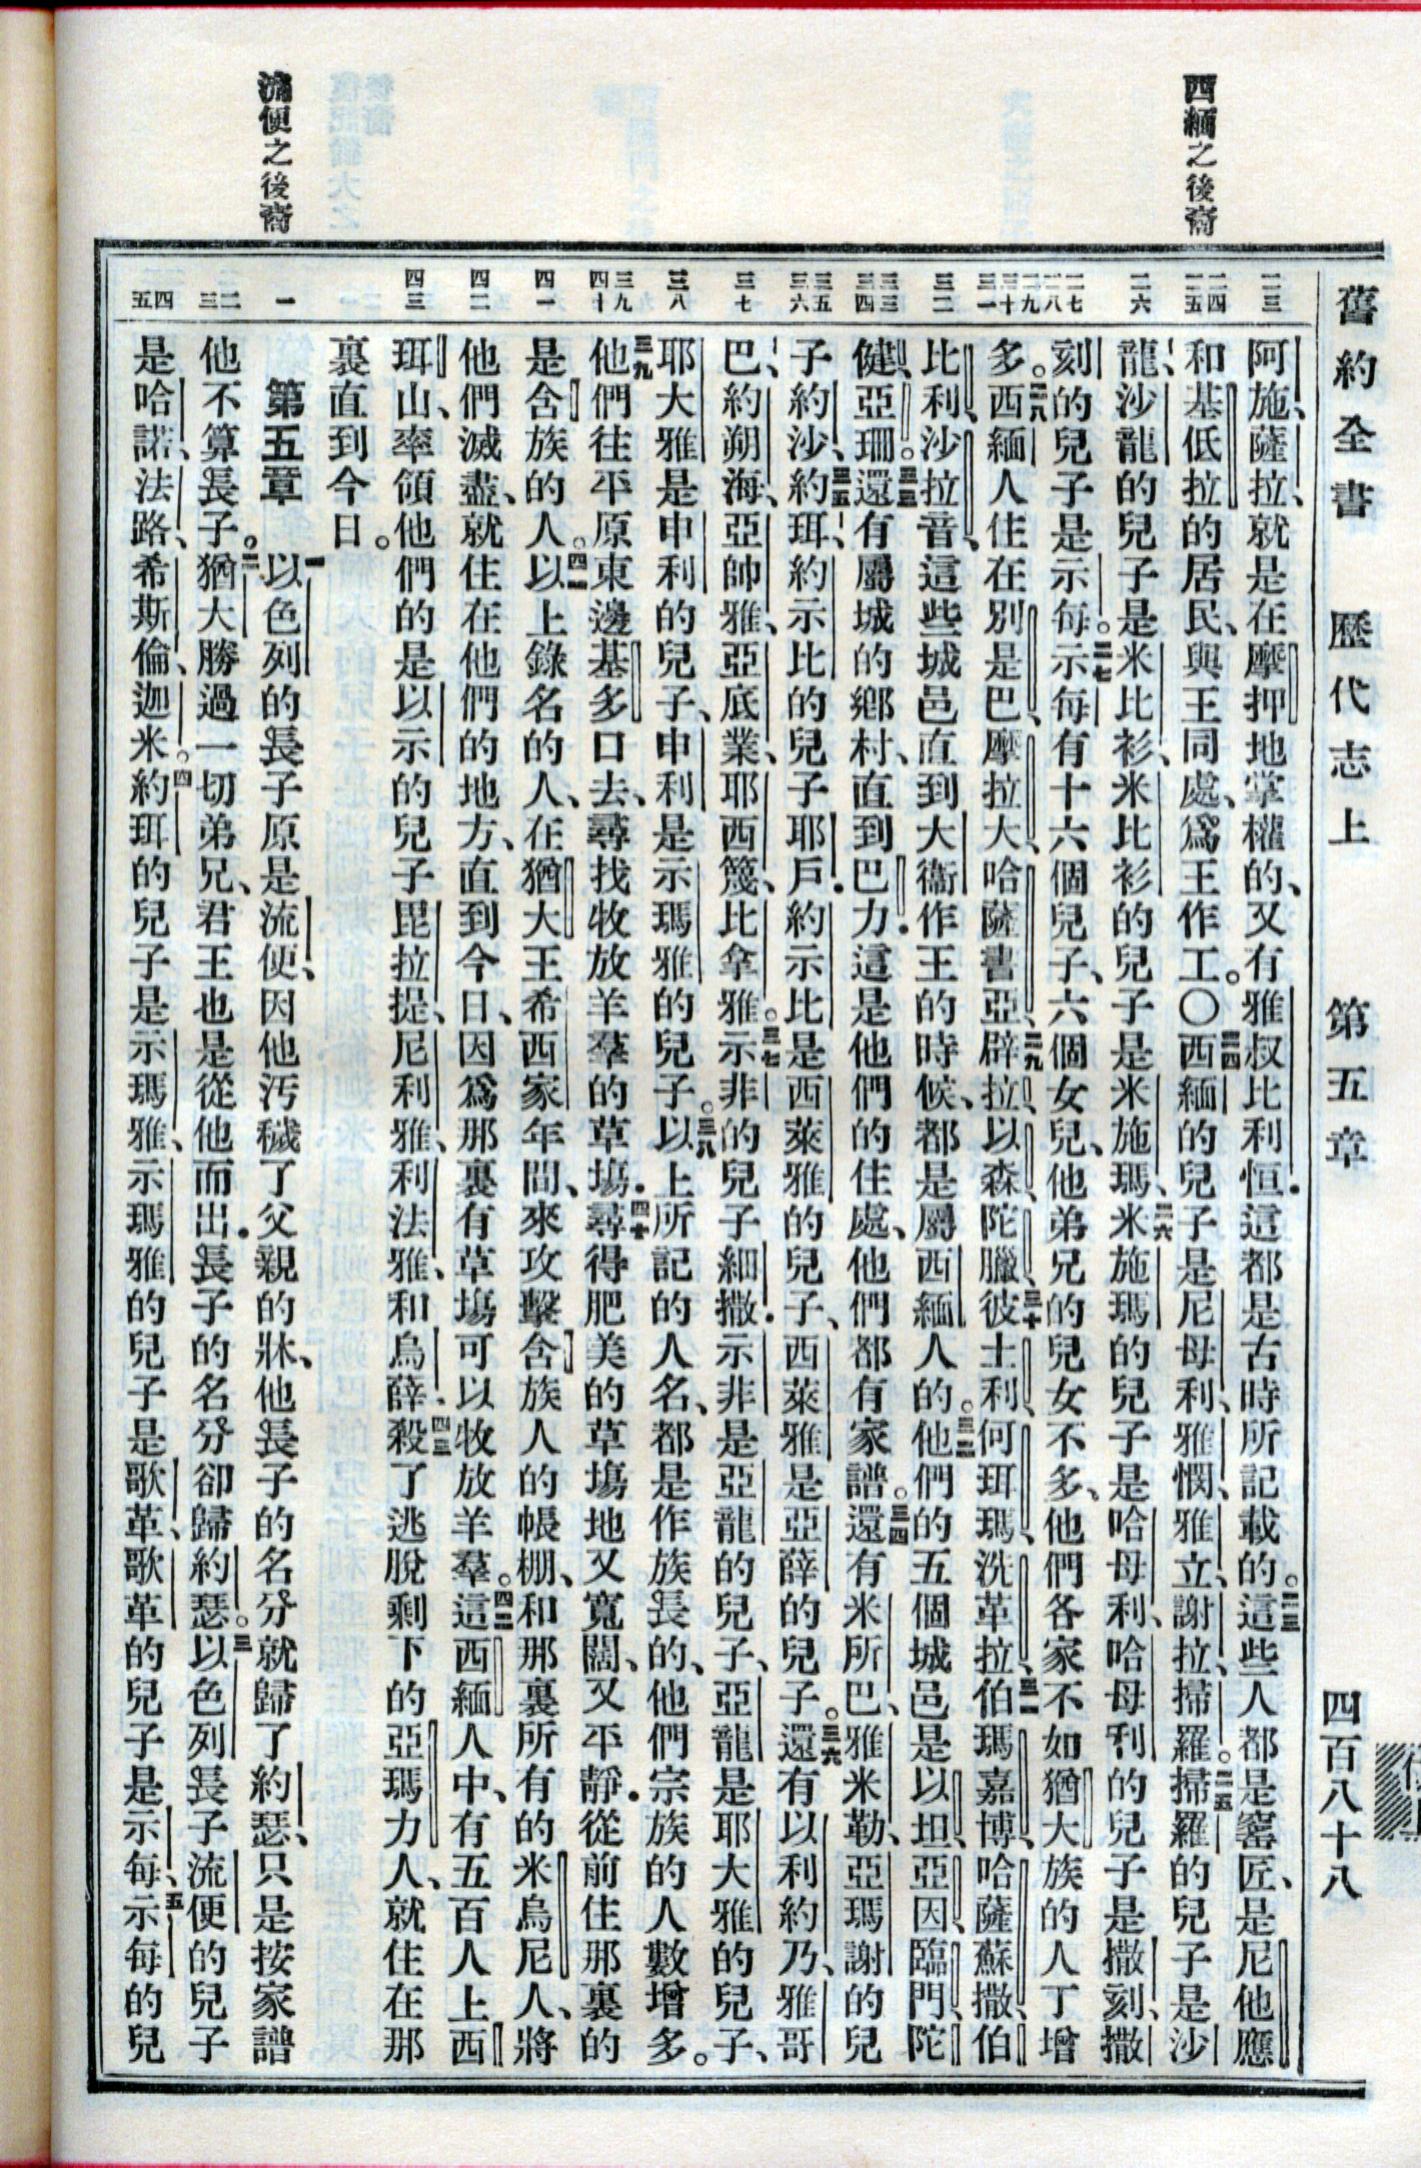 舊約全書 歷代志上 第五章 四百八十八
西緬之後裔
流便之後裔
二三
二四
二五
二六
二七
二八
二九
三十
三一
三二
三三
三四
三五
三六
三七
三八
三九
四十
四一
四二
四三
一
二
三
四
五
阿施、薩拉、就是在摩押地掌權的、又有雅叔比利恒.這都是古時所記載的。二三這些人都是窰匠、是尼他應
和基低拉的居民、與王同處、爲王作工。〇二四西緬的兒子是尼母利、雅憫、雅立、謝拉、掃羅。二五掃羅的兒子是沙
龍、沙龍的兒子是米比衫、米比衫的兒子是米施瑪、二六米施瑪的兒子是哈母利、哈母利的兒子是撒刻、撒
刻的兒子是示每。二七示每有十六個兒子、六個女兒、他弟兄的兒女不多、他們各家不如猶大族的人丁增
多。二八西緬人住在別是巴、摩拉大、哈薩書亞、二九辟拉、以森、陀臘、三十彼土利、何珥瑪、洗革拉、三一伯瑪嘉博、哈薩蘇撒、伯
比利、沙拉音、這些城邑直到大衞作王的時候、都是屬西緬人的。三二他們的五個城邑是以坦、亞因、臨門、陀
健、亞珊。三三還有屬城的鄉村、直到巴力.這是他們的住處、他們都有家譜。三四還有米所巴、雅米勒、亞瑪謝的兒
子約沙、三五約珥、約示比的兒子耶戶.約示比是西萊雅的兒子、西萊雅是亞薛的兒子。三六還有以利約乃、雅哥
巴、約朔海、亞帥雅、亞底業、耶西篾、比拿雅。三七示非的兒子細撒.示非是亞龍的兒子、亞龍是耶大雅的兒子、
耶大雅是申利的兒子、申利是示瑪雅的兒子。三八以上所記的人名、都是作族長的、他們宗族的人數增多。
三九他們往平原東邊基多口去、尋找牧放羊羣的草塲.四十尋得肥美的草塲地又寬闊、又平靜.從前住那裏的
是含族的人。四一以上錄名的人、在猶大王希西家年間、來攻擊含族人的帳棚、和那裏所有的米烏尼人、將
他們滅盡、就住在他們的地方、直到今日、因爲那裏有草塲可以牧放羊羣。四二這西緬人中、有五百人上西
珥山、率領他們的是以示的兒子毘拉提、尼利雅、利法雅、和烏薛.四三殺了逃脫剩下的亞瑪力人、就住在那
裏直到今日。
第五章 一以色列的長子原是流便、因他汚穢了父親的牀、他長子的名分就歸了約瑟、只是按家譜
他不算長子。二猶大勝過一切弟兄、君王也是從他而出.長子的名分卻歸約瑟。三以色列長子流便的兒子
是哈諾、法路、希斯倫、迦米。四約珥的兒子是示瑪雅、示瑪雅的兒子是歌革、歌革的兒子是示每、五示每的兒